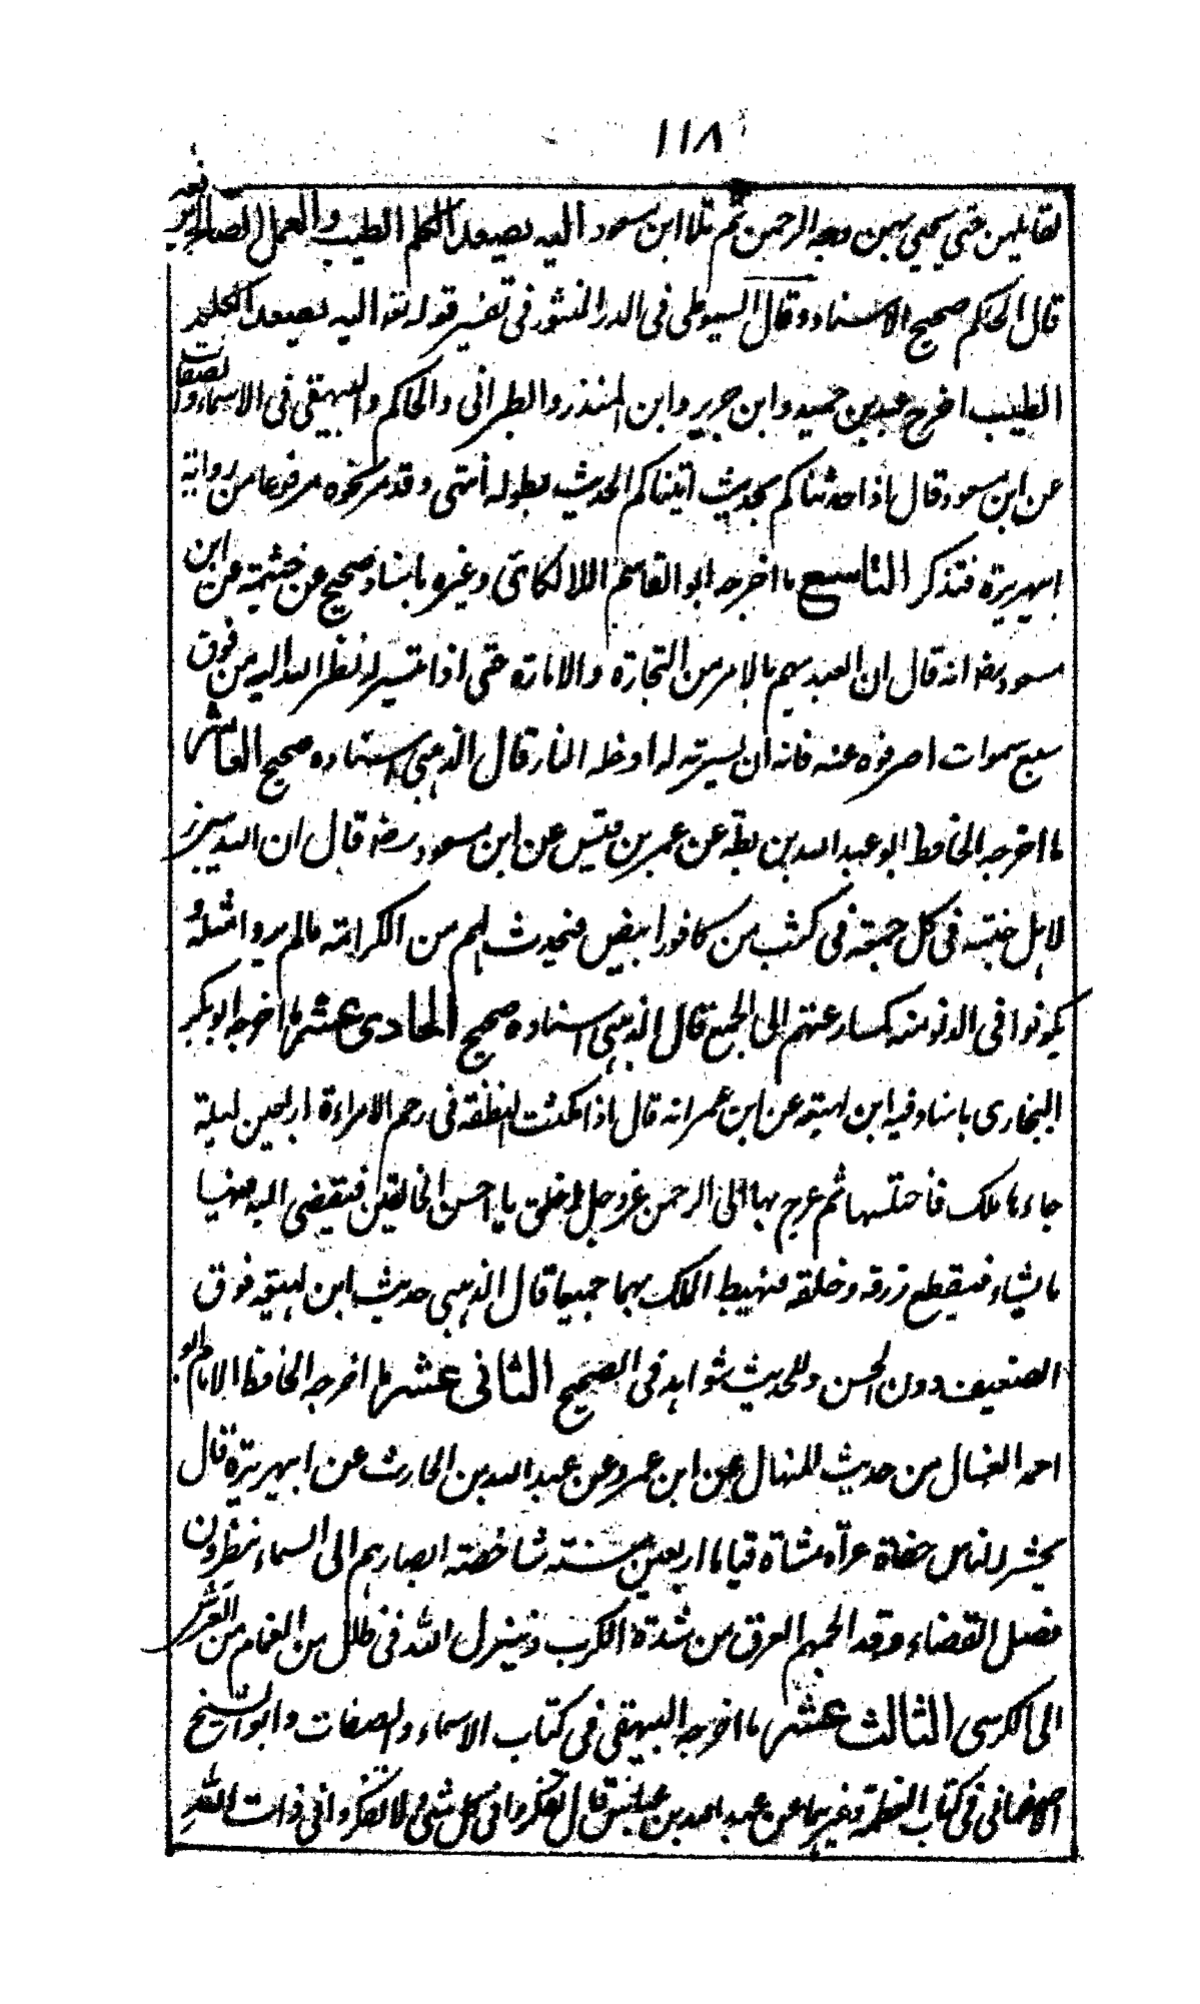 ١١٨
لقائلهن حتى يحيي بهن وجه الرحمن ثم تلا ابن مسعود اليه يصعد الكلم الطيب والعمل الصالح يرفعه
قال الحاكم صحيح الاسناد وقال السيوطي في الدر المنثور في تفسير قوله تعه اليه يصعد الكلم
الطيب اخرج عبد بن حميد وابن جرير وابن المنذر والطبراني والحاكم والبيهقي في الاسماء والصفات
عن ابن مسعود قال اذا حدثناكم بحديث اتيناكم الحديث بطوله انتهى وقد مر نحوه مرفوعا من رواية
ابيهريرة فتذكر التاسع ما اخرجه ابو القاسم اللالكائي وغيره باسناد صحيح عن خثيمة عن ابن
مسعود رضه انه قال ان العبد ليهم بالامر من التجارة والامارة حتى اذا تيسر له نظر الله اليه من فوق
سبع سموات اصرفوه عنه فانه ان يسرته له ادخله النار قال الذهبي اسناده صحيح العاشر
ما اخرجه الحافظ ابو عبد الله بن بطة عن عمر بن قيس عن ابن مسعود رضه قال ان الله يبرز
لاهل جنته في كل جمعة في كثب من كافور ابيض فيحدث لهم من الكرامة مالم يروا مثله و
يكونوا في الدنو منه كمسارعتهم الى الجمع قال الذهبي اسناده صحيح الحادي عشر ما اخرجه ابو بكر
البخاري باسناد فيه ابن لهيعة عن ابن عمر انه قال اذا مكثت النطفة في رحم الامراءة اربعين ليلة
جاءها ملك فاختلسها ثم عرج بها الى الرحمن عز وجل فيقول اخلق يا احسن الخالقين فيقضي اليه فيها
ما يشاء فيقطع رزقه وخلقه فيهبط الملك بهما جميعا قال الذهبي حديث ابن لهيعة فوق
الضعيف دون الحسن وللحديث شواهد في الصحيح الثاني عشر ما اخرجه الحافظ الامام ابو
احمد العسال من حديث المنهال عن ابن عمرو عن عبد الله بن الحارث عن ابيهريرة قال
يحشر الناس حفاة عراة مشاة قياما اربعين سنة شاخصة ابصارهم الى السماء ينظرون
فصل القضاء وقد الجمهم العرق من شدة الكرب وينزل الله في ظلل من الغمام من العرش
الى الكرسي الثالث عشر ما اخرجه البيهقي في كتاب الاسماء والصفات وابو الشيخ
الاصفهاني في كتاب العظمة وغيرهما عن عبد الله بن عباس قال تفكروا في كل شئ ولا تفكروا في ذات الله